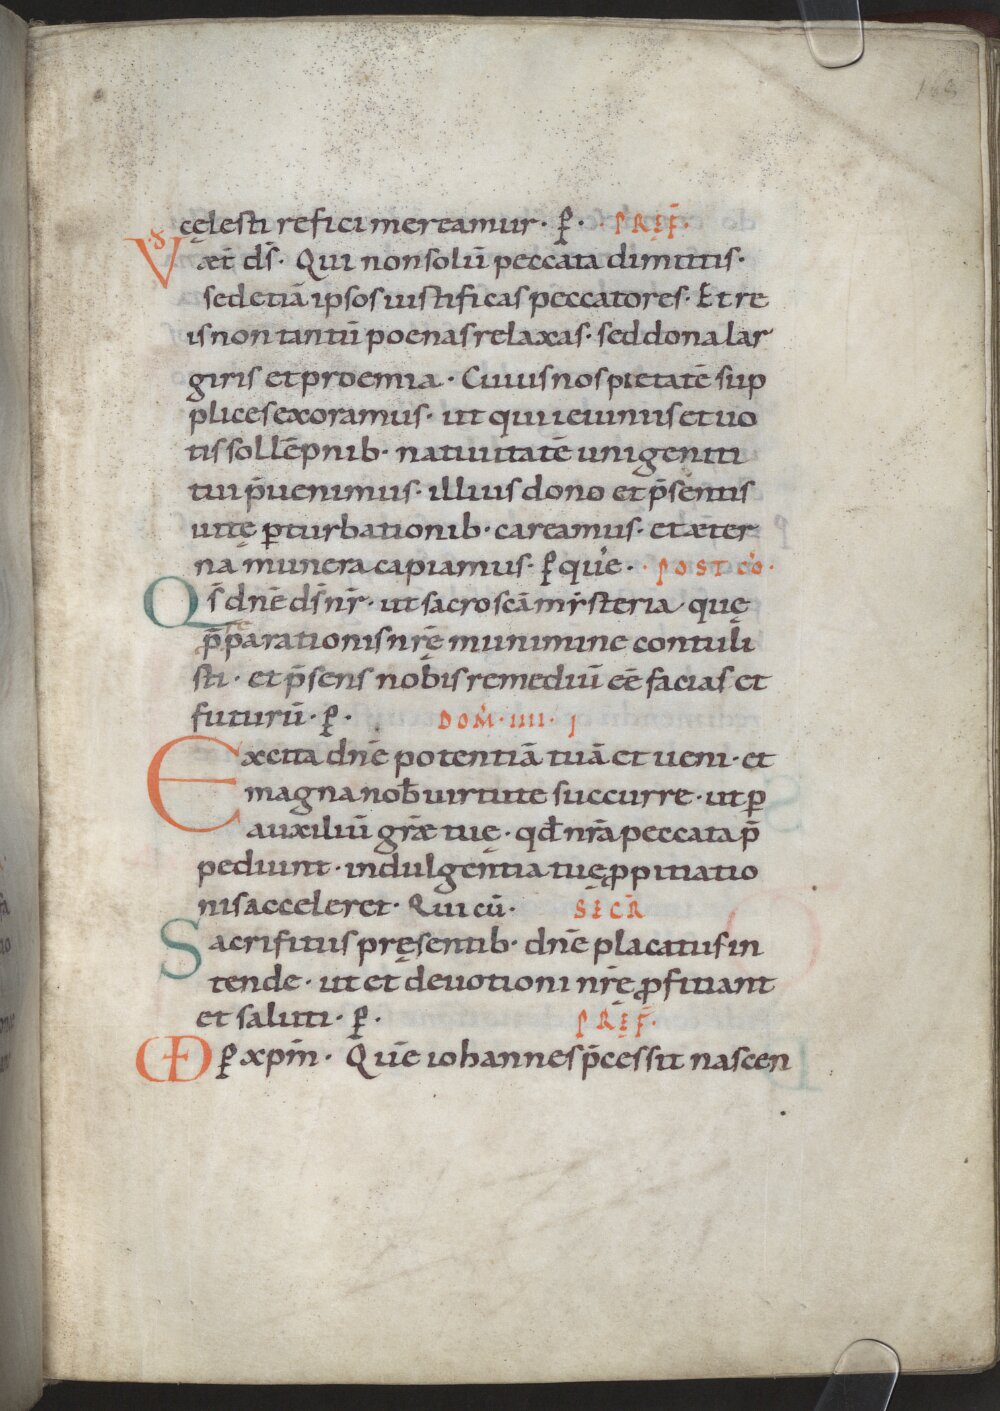 168
cęlesti refici mereamur · ꝑ · · PREF̄ ·
VD æt̄ ds̄ · Qui non solū peccata dimittis ·
sed etiā ipsos iustificas peccatores · Et re
is non tantū poenas relaxas · sed dona lar
giris et proemia · Cuius nos pietatē sup
plices exoramus · ut qui ieiuniis et uo
tis sollēpnib · natiuitatē unigeniti
tui p̄uenimus · illius dono et p̄sentis
uitę ꝑturbationib · careamus · et æter
na munera capiamus · ꝑ que · · POST CO ·
Qs̄ dn̄e ds̄ nr̄ · ut sacroscā mysteria quę
p̄parationis nr̄ę munimine contuli
sti · et p̄sens nobis remediū ēē facias et
futurū · ꝑ · DOM̄ · IIII ·
Excita dn̄e potentiā tuā et ueni · et
magna nob̄ uirtute succurre · ut ꝑ
auxiliū gr̄æ tuę · qd̄ nr̄a peccata p̄
pediunt · indulgentia tuę ꝓpitiatio
nis acceleret · Qui cū · SECR̄
Sacrifitiis pręsentib · dn̄e placatus in
tende · ut et deuotioni nr̄ę ꝓfitiant
et saluti · ꝑ · PREF̄ ·
VD ꝑ xp̄m · Quē iohannes p̄cessit nascen